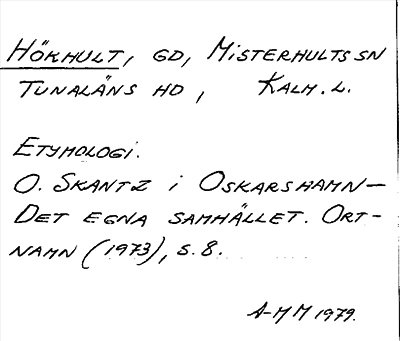 HÖKHULT, GD, MISTERHULTS SN
TUNALÄNS HD, KALM. L.
ETYMOLOGI.
O. SKANTZ i OSKARSHAMN—
DET EGNA SAMHÄLLET. ORT-
NAMN (1973), S. 8.
A-MM 1979.